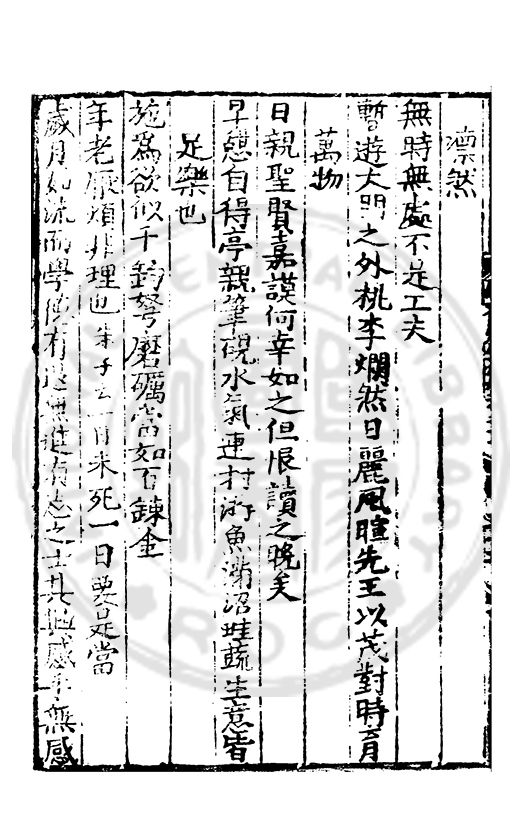 凛然
無時無處不是工夫
暫遊大門之外桃李爛然日麗風暄先王以茂對時育
萬物
日親聖賢嘉謨何幸如之但恨讀之晚矣
早憩自得亭親筆硯水氣連村海魚滿沼畦蔬生意皆
足樂也
施為欲似千鈞弩磨礪當如百鍊金
年老厭煩非理也朱子云一日未死一日要是當
歲月如流而學德有退無進有志之士其無感乎無感